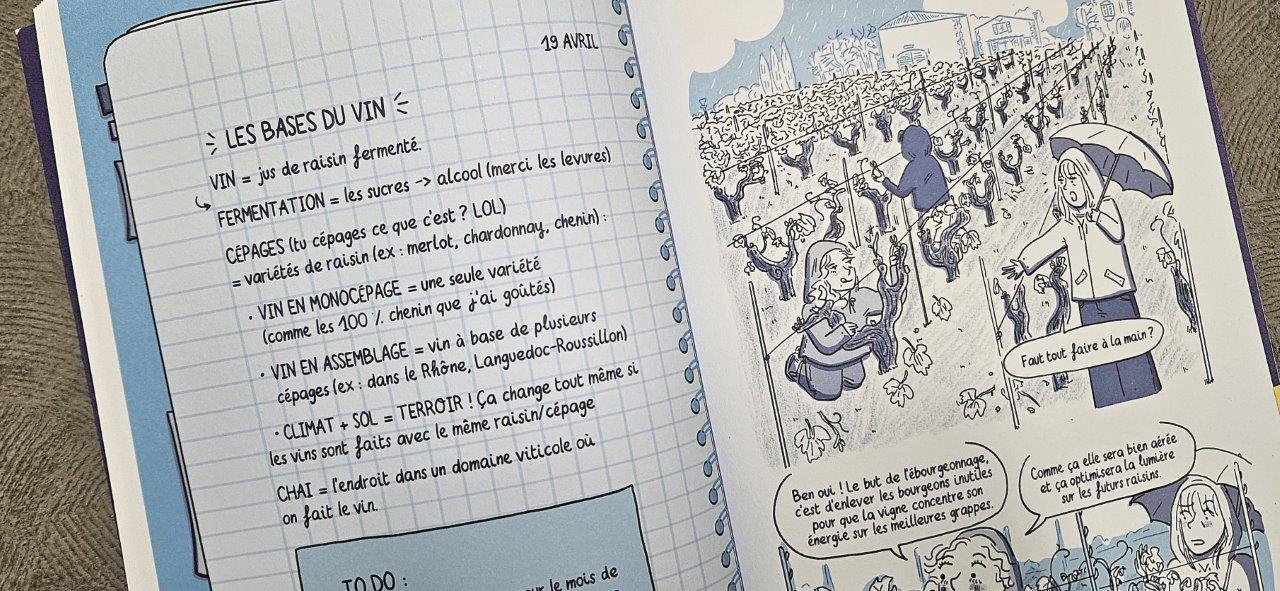 19 AVRIL
LES BASES DU VIN
VIN = jus de raisin fermenté.
FERMENTATION = les sucres -> alcool (merci les levures)
CÉPAGES (tu cépages ce que c'est ? LOL)
= variétés de raisin (ex : merlot, chardonnay, chenin) :
· VIN EN MONOCÉPAGE = une seule variété
(comme les 100 % chenin que j'ai goûtés)
· VIN EN ASSEMBLAGE = vin à base de plusieurs
cépages (ex : dans le Rhône, Languedoc-Roussillon)
· CLIMAT + SOL = TERROIR ! Ça change tout même si
les vins sont faits avec le même raisin/cépage
CHAI = l'endroit dans un domaine viticole où
on fait le vin.
TO DO :
le mois de
Faut tout faire à la main ?
Ben oui ! Le but de l'ébourgeonnage,
c'est d'enlever les bourgeons inutiles
pour que la vigne concentre son
énergie sur les meilleures grappes.
Comme ça elle sera bien aérée
et ça optimisera la lumière
sur les futurs raisins.